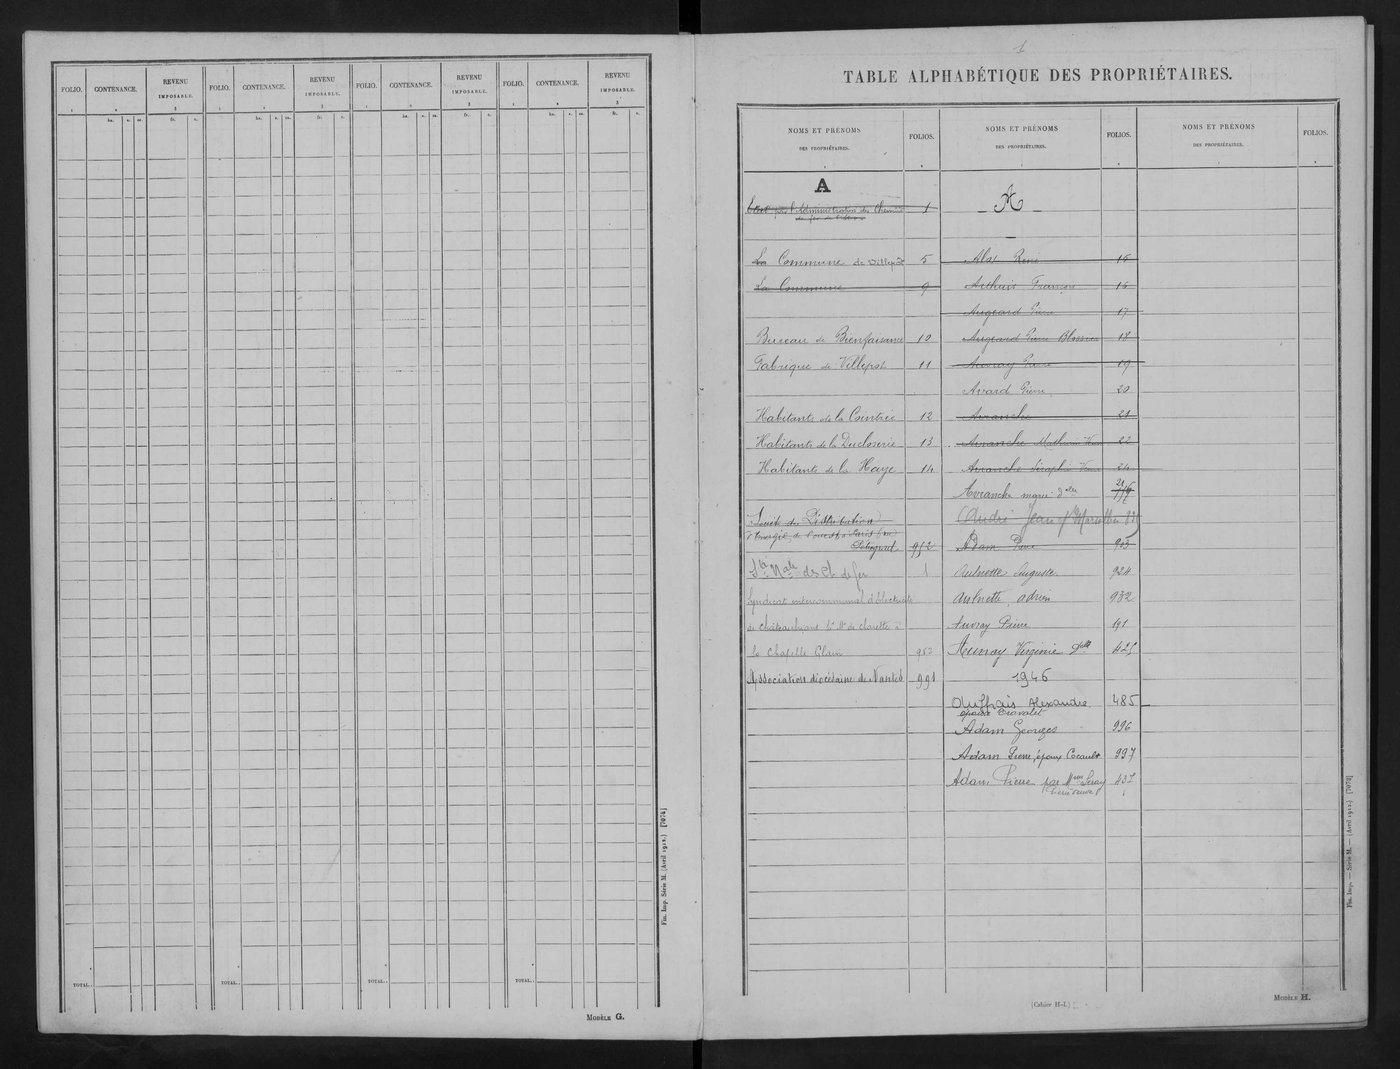 FOLIO. CONTENANCE. REVENU IMPOSABLE. FOLIO. CONTENANCE. REVENU IMPOSABLE. FOLIO. CONTENANCE. REVENU IMPOSABLE. FOLIO. CONTENANCE. REVENU IMPOSABLE.
1 2 3 1 2 3 1 2 3 1 2 3
ha. a. ca. fr. c. ha. a. ca. fr. c. ha. a. ca. fr. c. ha. a. ca. fr. c.
TOTAL. TOTAL. TOTAL. TOTAL.
Fin. Imp. Série M. (Avril 1912.) [7074]
MODÈLE G.
1
TABLE ALPHABÉTIQUE DES PROPRIÉTAIRES.
NOMS ET PRÉNOMS DES PROPRIÉTAIRES. FOLIOS. NOMS ET PRÉNOMS DES PROPRIÉTAIRES. FOLIOS. NOMS ET PRÉNOMS DES PROPRIÉTAIRES. FOLIOS.
A
Etat par l'Administration des Chemins 1
de fer de l'Etat
La Commune de Villepôt 5
La Commune 9
Bureau de Bienfaisance 10
Fabrique de Villepot 11
Habitants de la Contrie 12
Habitants de la Ducloserie 13
Habitants de la Haye 14
Société de Distribution
d'Energie de l'ouest à Paris
952
Sté Nale des ch de fer 1
Syndicat intercommunal d'électricité
de Châteaubriant
la Chapelle Glain 952
Association diocésaine de Nantes 991
A
René 15
Arthuis François 16
Augeard Pierre 17
Augeard Pierre 18
Auvray Pierre 19
Avard Pierre 20
Avranche 21
Avranche Veuve 22
Avranche Séraphin Veuve 24
Avranche 21
André Jean
Adam Pierre 903
Aulnette Auguste 924
Aulnette Adrien 932
Auvray Pierre 191
Auvray Virginie Delle 425
1946
Auffrais Alexandre 485
épouse Cravalet
Adam Georges 996
Adam Pierre, époux Cocault 997
Adam Pierre par Mme 437
(Cahier H-I.)
MODÈLE H.
Fin. Imp. — Série M. — (Avril 1912.) [7073]